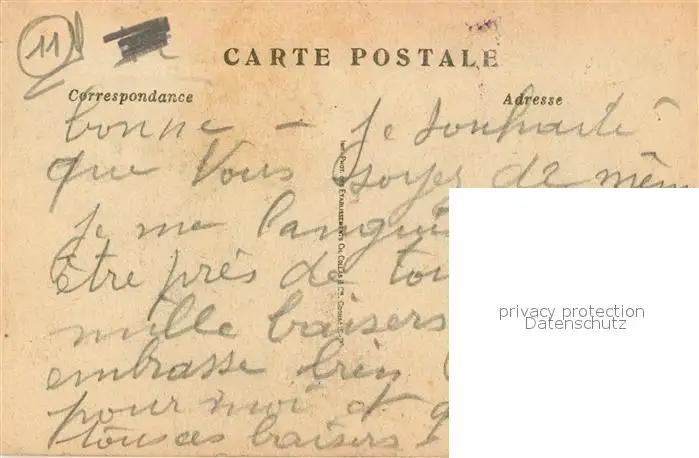 11
CARTE POSTALE
Correspondance
Adresse
bonne – je souhaite
que Vous soyez de mêm
je me langui
être près de tou
mille baisers
embrasse bien
pour moi et
tous ces baisers
IMP. PHOT. DES ETABLISSEMENTS CH. COLLAS & Cie, COGNAC
privacy protection
Datenschutz